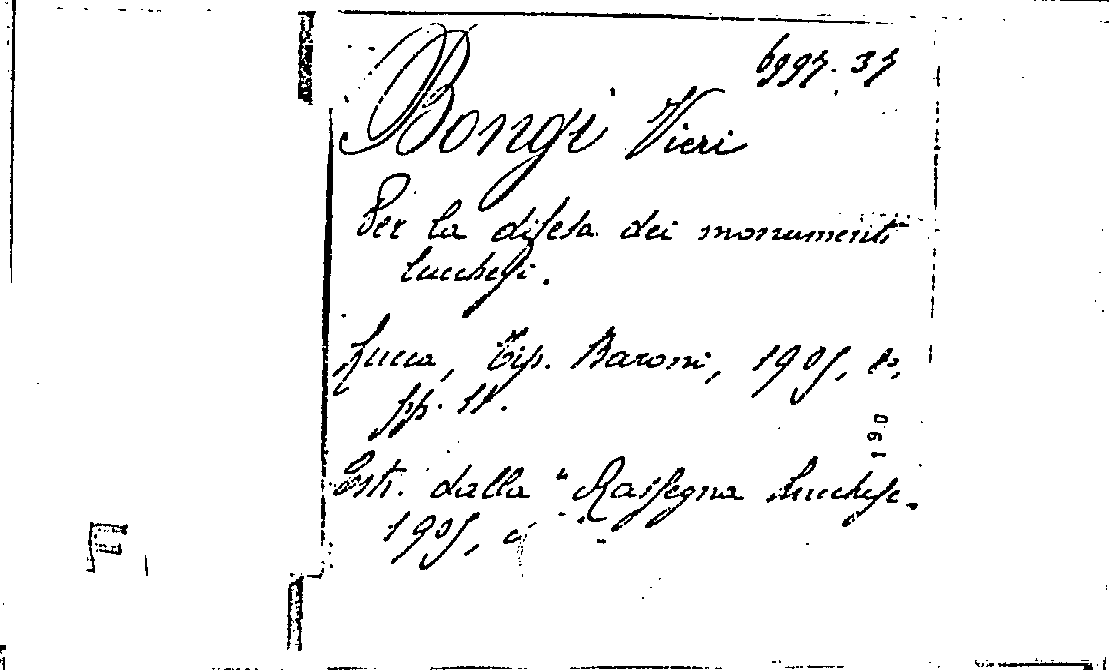 6997. 37
Bongi Vieri
Per la difesa dei monumenti
lucchesi.
Lucca, Tip. Baroni, 1905, 8°,
pp. 11.
190
Estr. dalla "Rassegna lucchese.
1905,
F